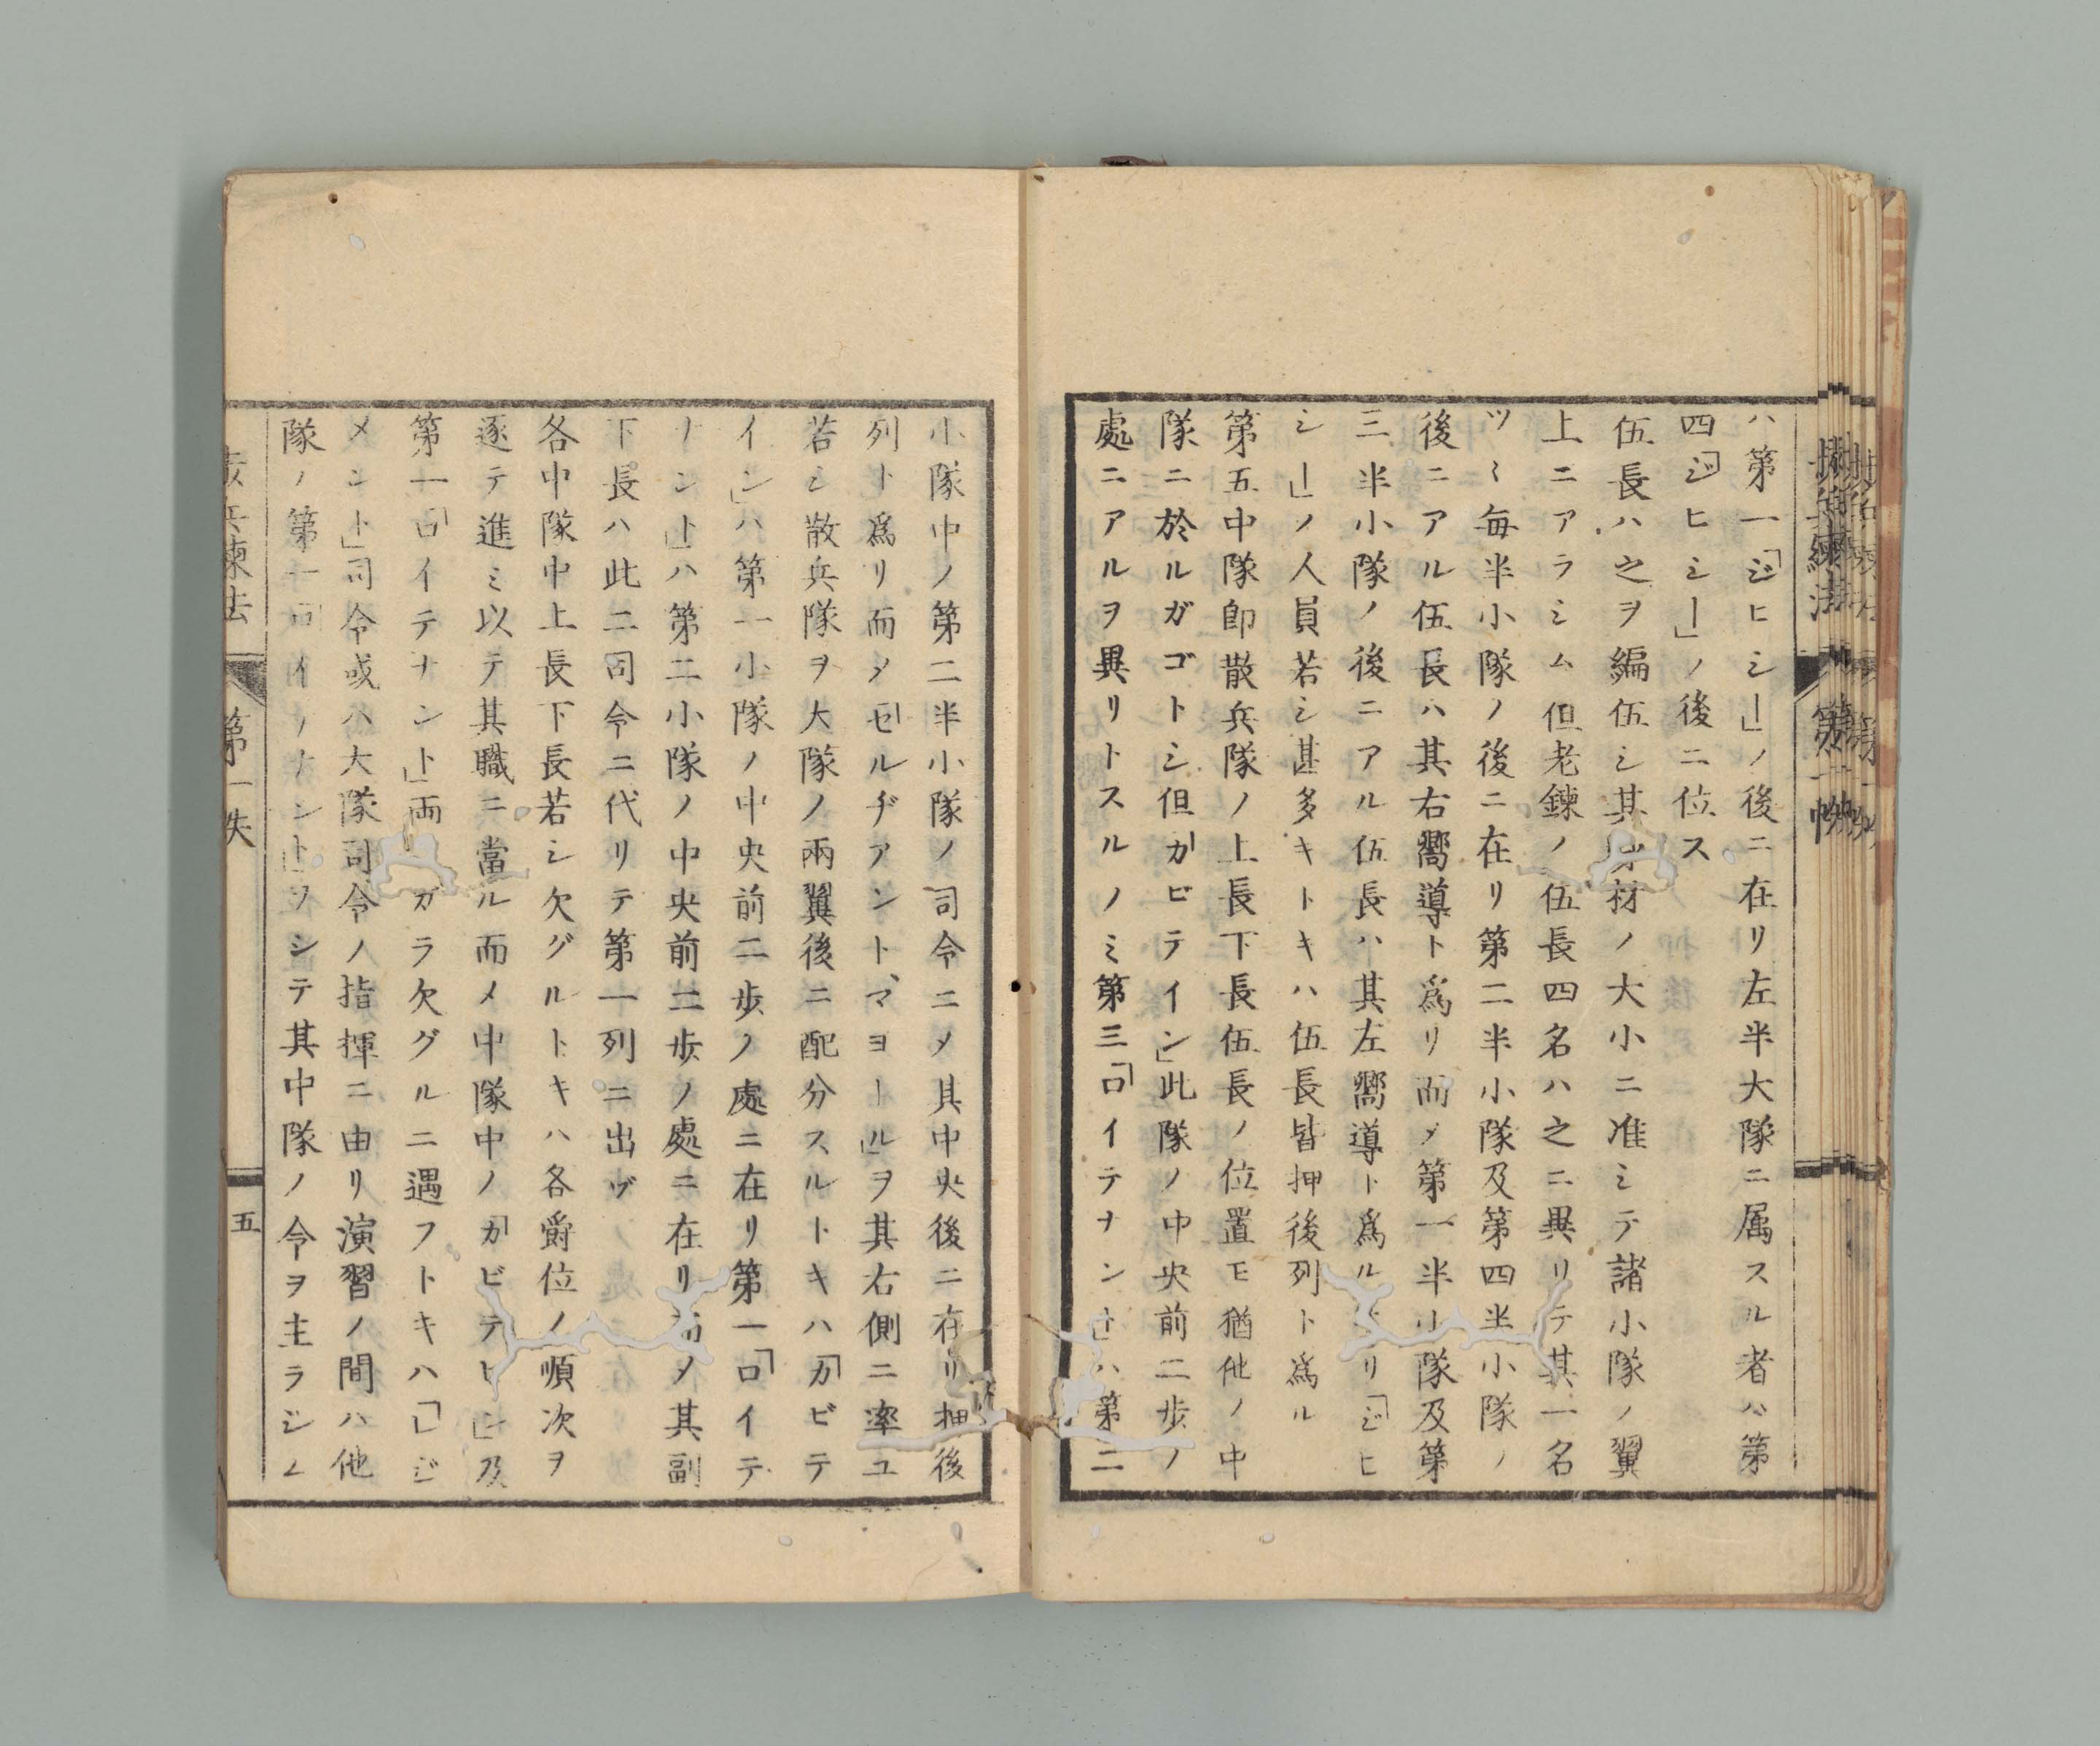 ハ第一「ジヒシー」ノ後ニ在リ左半大隊ニ属スル者ハ第
四「ジヒシー」ノ後ニ位ス
伍長ハ之ヲ編伍シ其身材ノ大小ニ准シテ諸小隊ノ翼
上ニアラシム但老錬ノ伍長四名ハ之ニ異リテ其一名
ツヽ毎半小隊ノ後ニ在リ第二半小隊及第四半小隊ノ
後ニアル伍長ハ其右嚮導ト為リ而メ第一半小隊及第
三半小隊ノ後ニアル伍長ハ其左嚮導ト為ルリ「ジヒ
シー」ノ人員若シ甚多キトキハ伍長皆押後列ト為ル
第五中隊即散兵隊ノ上長下長伍長ノ位置モ猶他ノ中
隊ニ於ルガゴトシ但「カビテイン」此隊ノ中央前二歩ノ
處ニアルヲ異リトスルノミ第三「ロイテナント」ハ第二
小隊中ノ第二半小隊ノ司令ニメ其中央後ニ在リ押後
列ト為リ而メ「セルヂアント、マヨール」ヲ其右側ニ率ユ
若シ散兵隊ヲ大隊ノ兩翼後ニ配分スルトキハ「カビテ
イン」ハ第一小隊ノ中央前二歩ノ處ニ在リ第一「ロイテ
ナント」ハ第二小隊ノ中央前二歩ノ處ニ在リ而メ其副
下長ハ此二司令ニ代リテ第一列ニ出ヅ
各中隊中上長下長若シ欠グルトキハ各爵位ノ順次ヲ
逐テ進ミ以テ其職ニ當ル而メ中隊中ノ「カビテヒン」及
第一「ロイテナント」両ナガラ欠グルニ遇フトキハ「レジ
メント」司令或ハ大隊司令ノ指揮ニ由リ演習ノ間ハ他
隊ノ第一「ロイテナント」ヲシテ其中隊ノ令ヲ主ラシム
第一帙
五